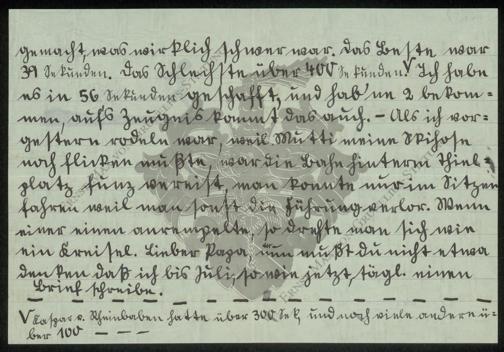 gemacht, was wirklich schwer war. Das Beste war
39 Sekunden. Das Schlechste über 400 Sekunden.√ Ich habe
es in 56 Sekunden geschafft, und hab' ne 2 bekom-
men, aufs Zeugnis kommt das auch. – Als ich vor-
gestern rodeln war, weil Mutti meine Skihose
noch flicken mußte, war die Bahn hinterm Thiel-
platz ganz vereist, man konnte nur im Sitzen
fahren weil man sonst die Führung verlor. Wenn
einer einen anrempelte, so drehte man sich wie
ein Kreisel. Lieber Papa, nun mußt du nicht etwa
denken daß ich bis Juli, so wie jetzt, tägl. einen
Brief schreibe.
√ Caspar v. Rheinbaben hatte über 300 Sek, und noch viele andere ü-
ber 100 – – –